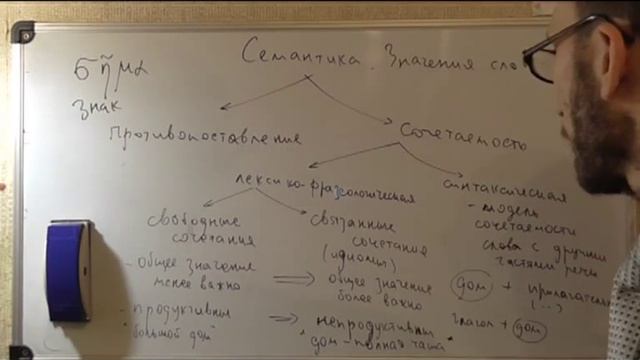 Семантика. Значения слов
σῆμα
знак
противопоставление
сочетаемость
лексико-фразеологическая
синтаксическая
свободные
сочетания
связанные
сочетание
(идиомы)
- модель
сочетаемости
слова с другими
частями речи
- общее значение
менее важно
общее значение
более важно
дом + прилагатель
(...)
- продуктивны
"большой дом"
непродуктивны
"дом - полная чаша"
глагол + дом